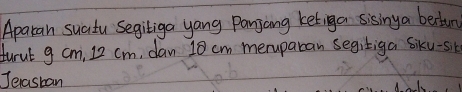 Apakah suatu segitiga yang panjang ketiga sisinya berturu
turut 9 cm, 12 cm, dan 18 cm merupakan segitiga siku-sik
Jelaskan